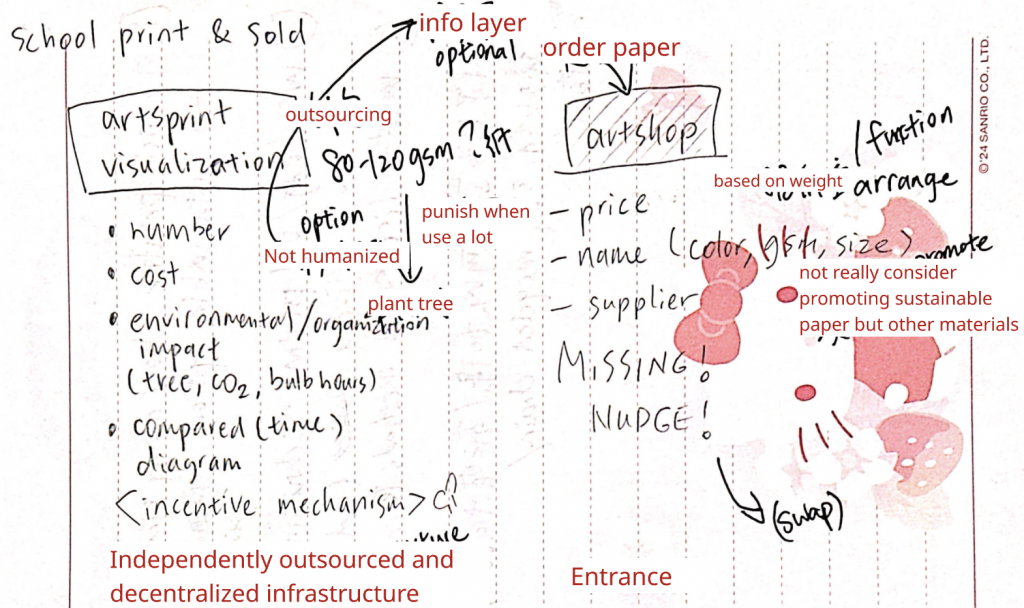 school print & sold
info layer
optional
order paper
artsprint
visualization
outsourcing
80-120gsm ?
option
Not humanized
punish when
use a lot
plant tree
• number
• cost
• environmental/organization
impact
(tree, CO2, bulb hours)
• compared (time)
diagram
<incentive mechanism>
Independently outsourced and
decentralized infrastructure
artshop
/ function
based on weight
arrange
- price
- name (color, gsm, size)
promote
- supplier
not really consider
promoting sustainable
paper but other materials
MISSING!
NUDGE!
(swap)
Entrance
©'24 SANRIO CO., LTD.